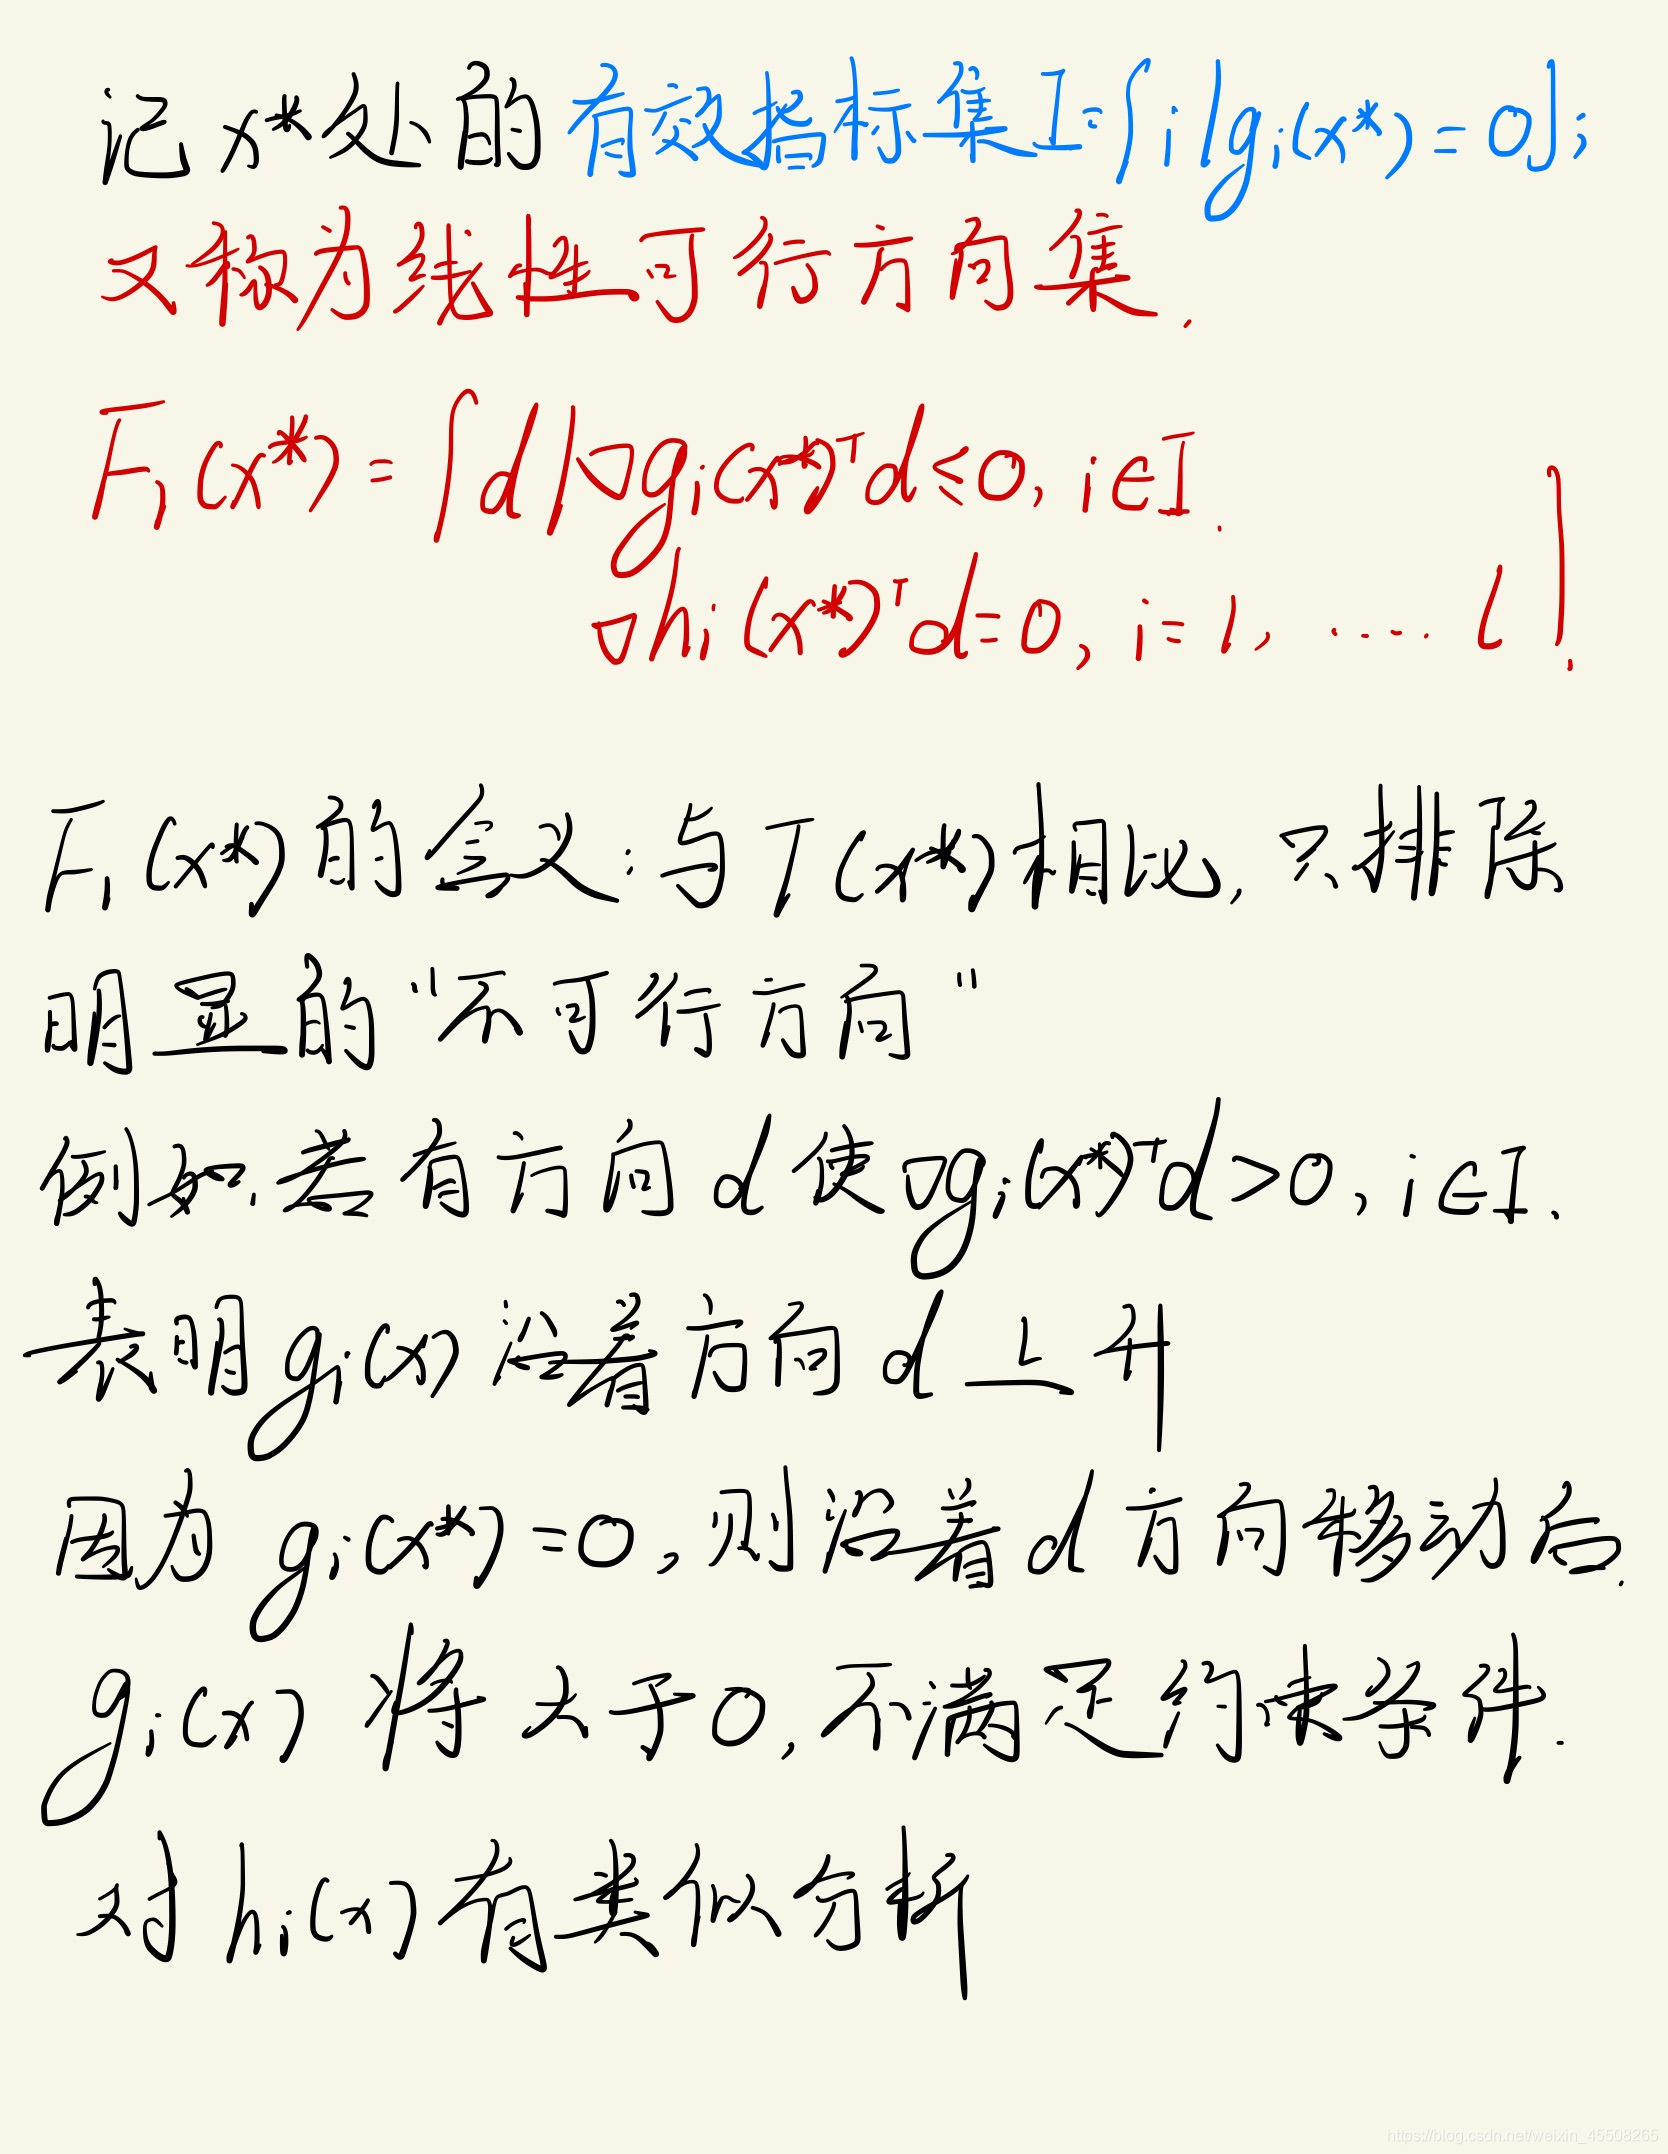 记 x*处的有效指标集I={i|gᵢ(x*)=0};
又称为线性可行方向集.
F₁(x*)={d|∇gᵢ(x*)ᵀd≤0, i∈I.
∇hᵢ(x*)ᵀd=0, i=1, ..... l}.
F₁(x*)的含义:与T(x*)相比,只排除
明显的"不可行方向"
例如.若有方向d使∇gᵢ(x*)ᵀd>0, i∈I.
表明gᵢ(x)沿着方向d上升
因为gᵢ(x*)=0,则沿着d方向移动后.
gᵢ(x)将大于0,不满足约束条件.
对hᵢ(x)有类似分析
https://blog.csdn.net/weixin_45508265